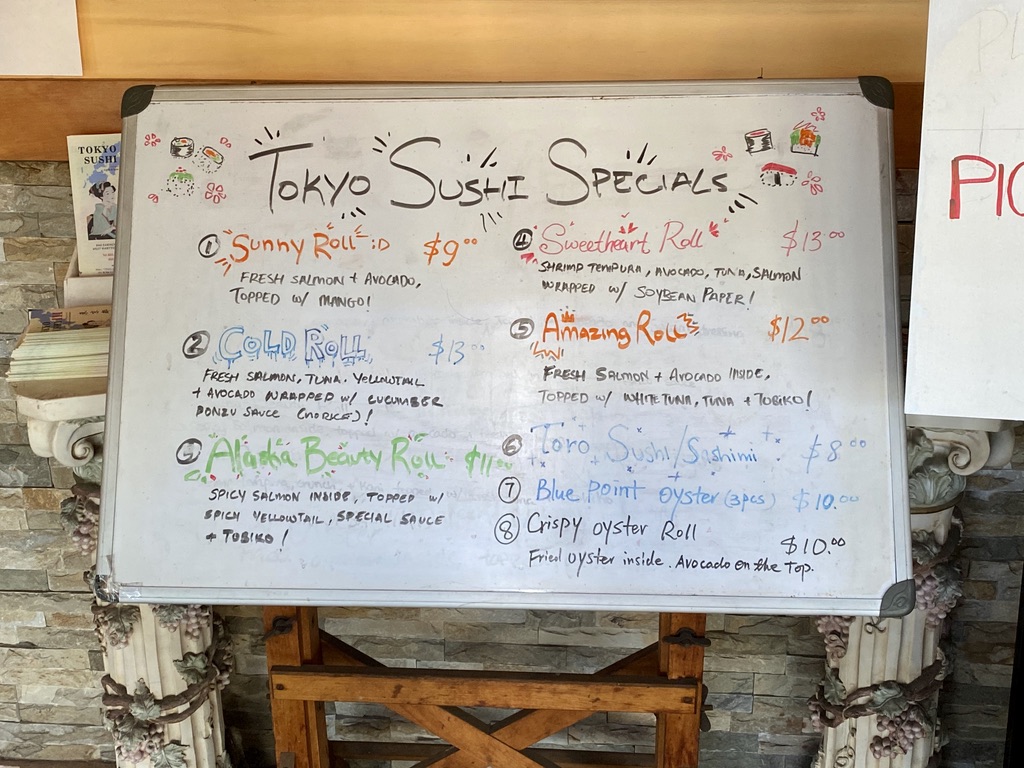 TOKYO SUSHI SPECIALS
TOKYO
SUSHI
PIC
1 Sunny Roll :D $9.00
FRESH SALMON + AVOCADO,
TOPPED W/ MANGO!
2 COLD ROLL $13.00
FRESH SALMON, TUNA, YELLOWTAIL
+ AVOCADO WRAPPED W/ CUCUMBER
PONZU SAUCE (NORICE)!
3 Alaska Beauty Roll $11.00
SPICY SALMON INSIDE, TOPPED W/
SPICY YELLOWTAIL, SPECIAL SAUCE
+ TOBIKO!
4 Sweetheart Roll $13.00
SHRIMP TEMPURA, AVOCADO, TUNA, SALMON
WRAPPED W/ SOYBEAN PAPER!
5 Amazing Roll $12.00
FRESH SALMON + AVOCADO INSIDE,
TOPPED W/ WHITE TUNA, TUNA + TOBIKO!
6 Toro Sushi/Sashimi $8.00
7 Blue point oyster (3pcs) $10.00
8 Crispy oyster Roll
$10.00
Fried oyster inside. Avocado on the Top.